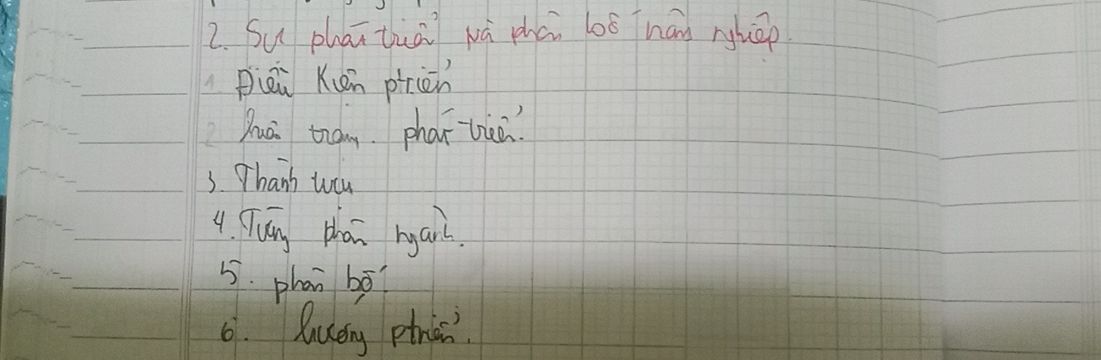 2. Sự phát triển và phân bố nông nghiệp.
1 Điều kiện ptriển
2 Quá trình phát triển.
3. Thành tựu
4. Từng phân ngành.
5. phân bố
6. hướng ptriển.